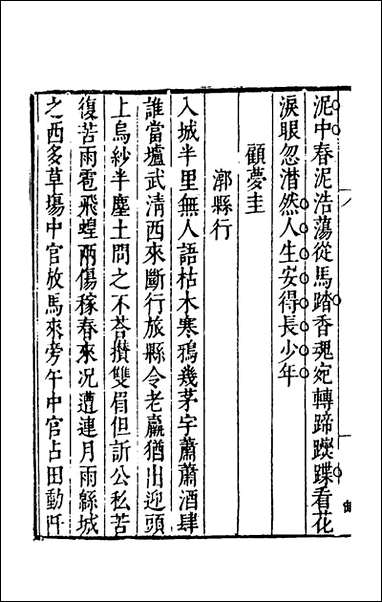 泥中春泥浩蕩從馬踏香魂宛轉蹄蹤蹀看花
淚眼忽潸然人生安得長少年
顧夢圭
漷縣行
入城半里無人語枯木寒鴉幾茅宇蕭蕭酒肆
誰當壚武清西來斷行旅縣令老羸猶出迎頭
上烏紗半塵土問之不荅攢雙眉但訴公私苦
復苦雨雹飛蝗兩傷稼春來况遭連月雨縣城
之西多草塲中官放馬來旁午中官占田動阡